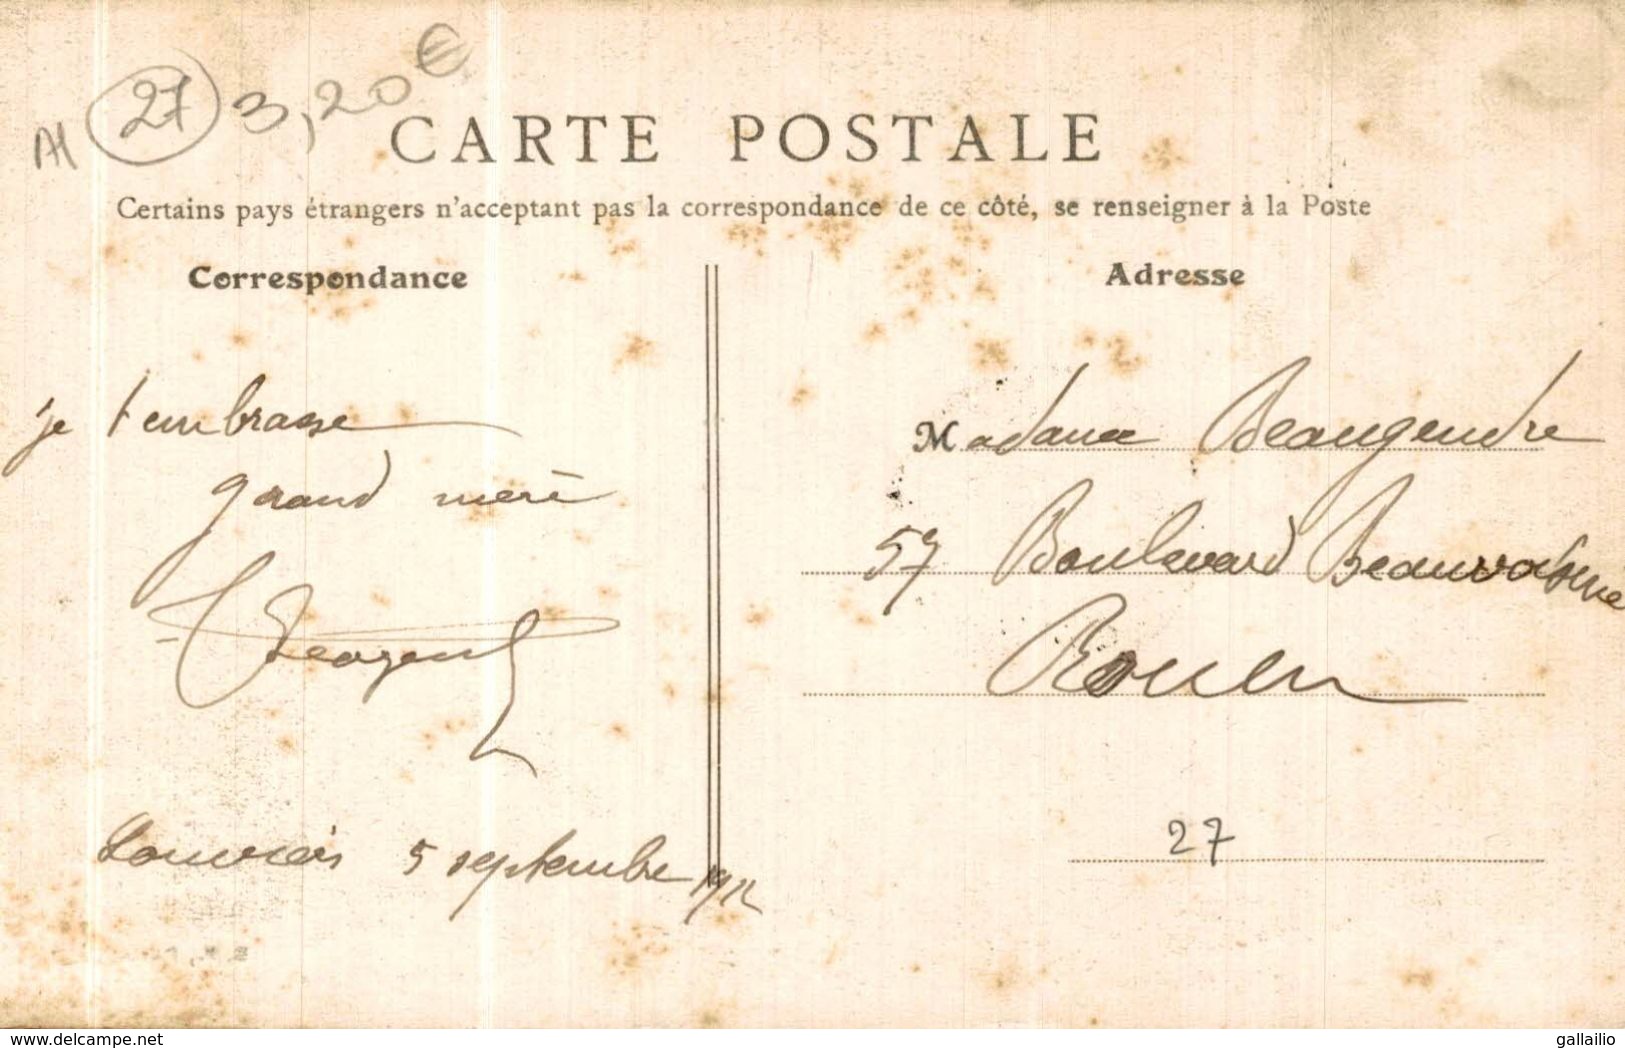 27 3,20 €
CARTE POSTALE
Certains pays étrangers n'acceptant pas la correspondance de ce côté, se renseigner à la Poste
Correspondance
je t'embrasse
grand mère
Louviers 5 septembre 1912
Adresse
Madame Beaugendre
57 Boulevard Beauvoisine
Rouen
27
www.delcampe.net
gallailio